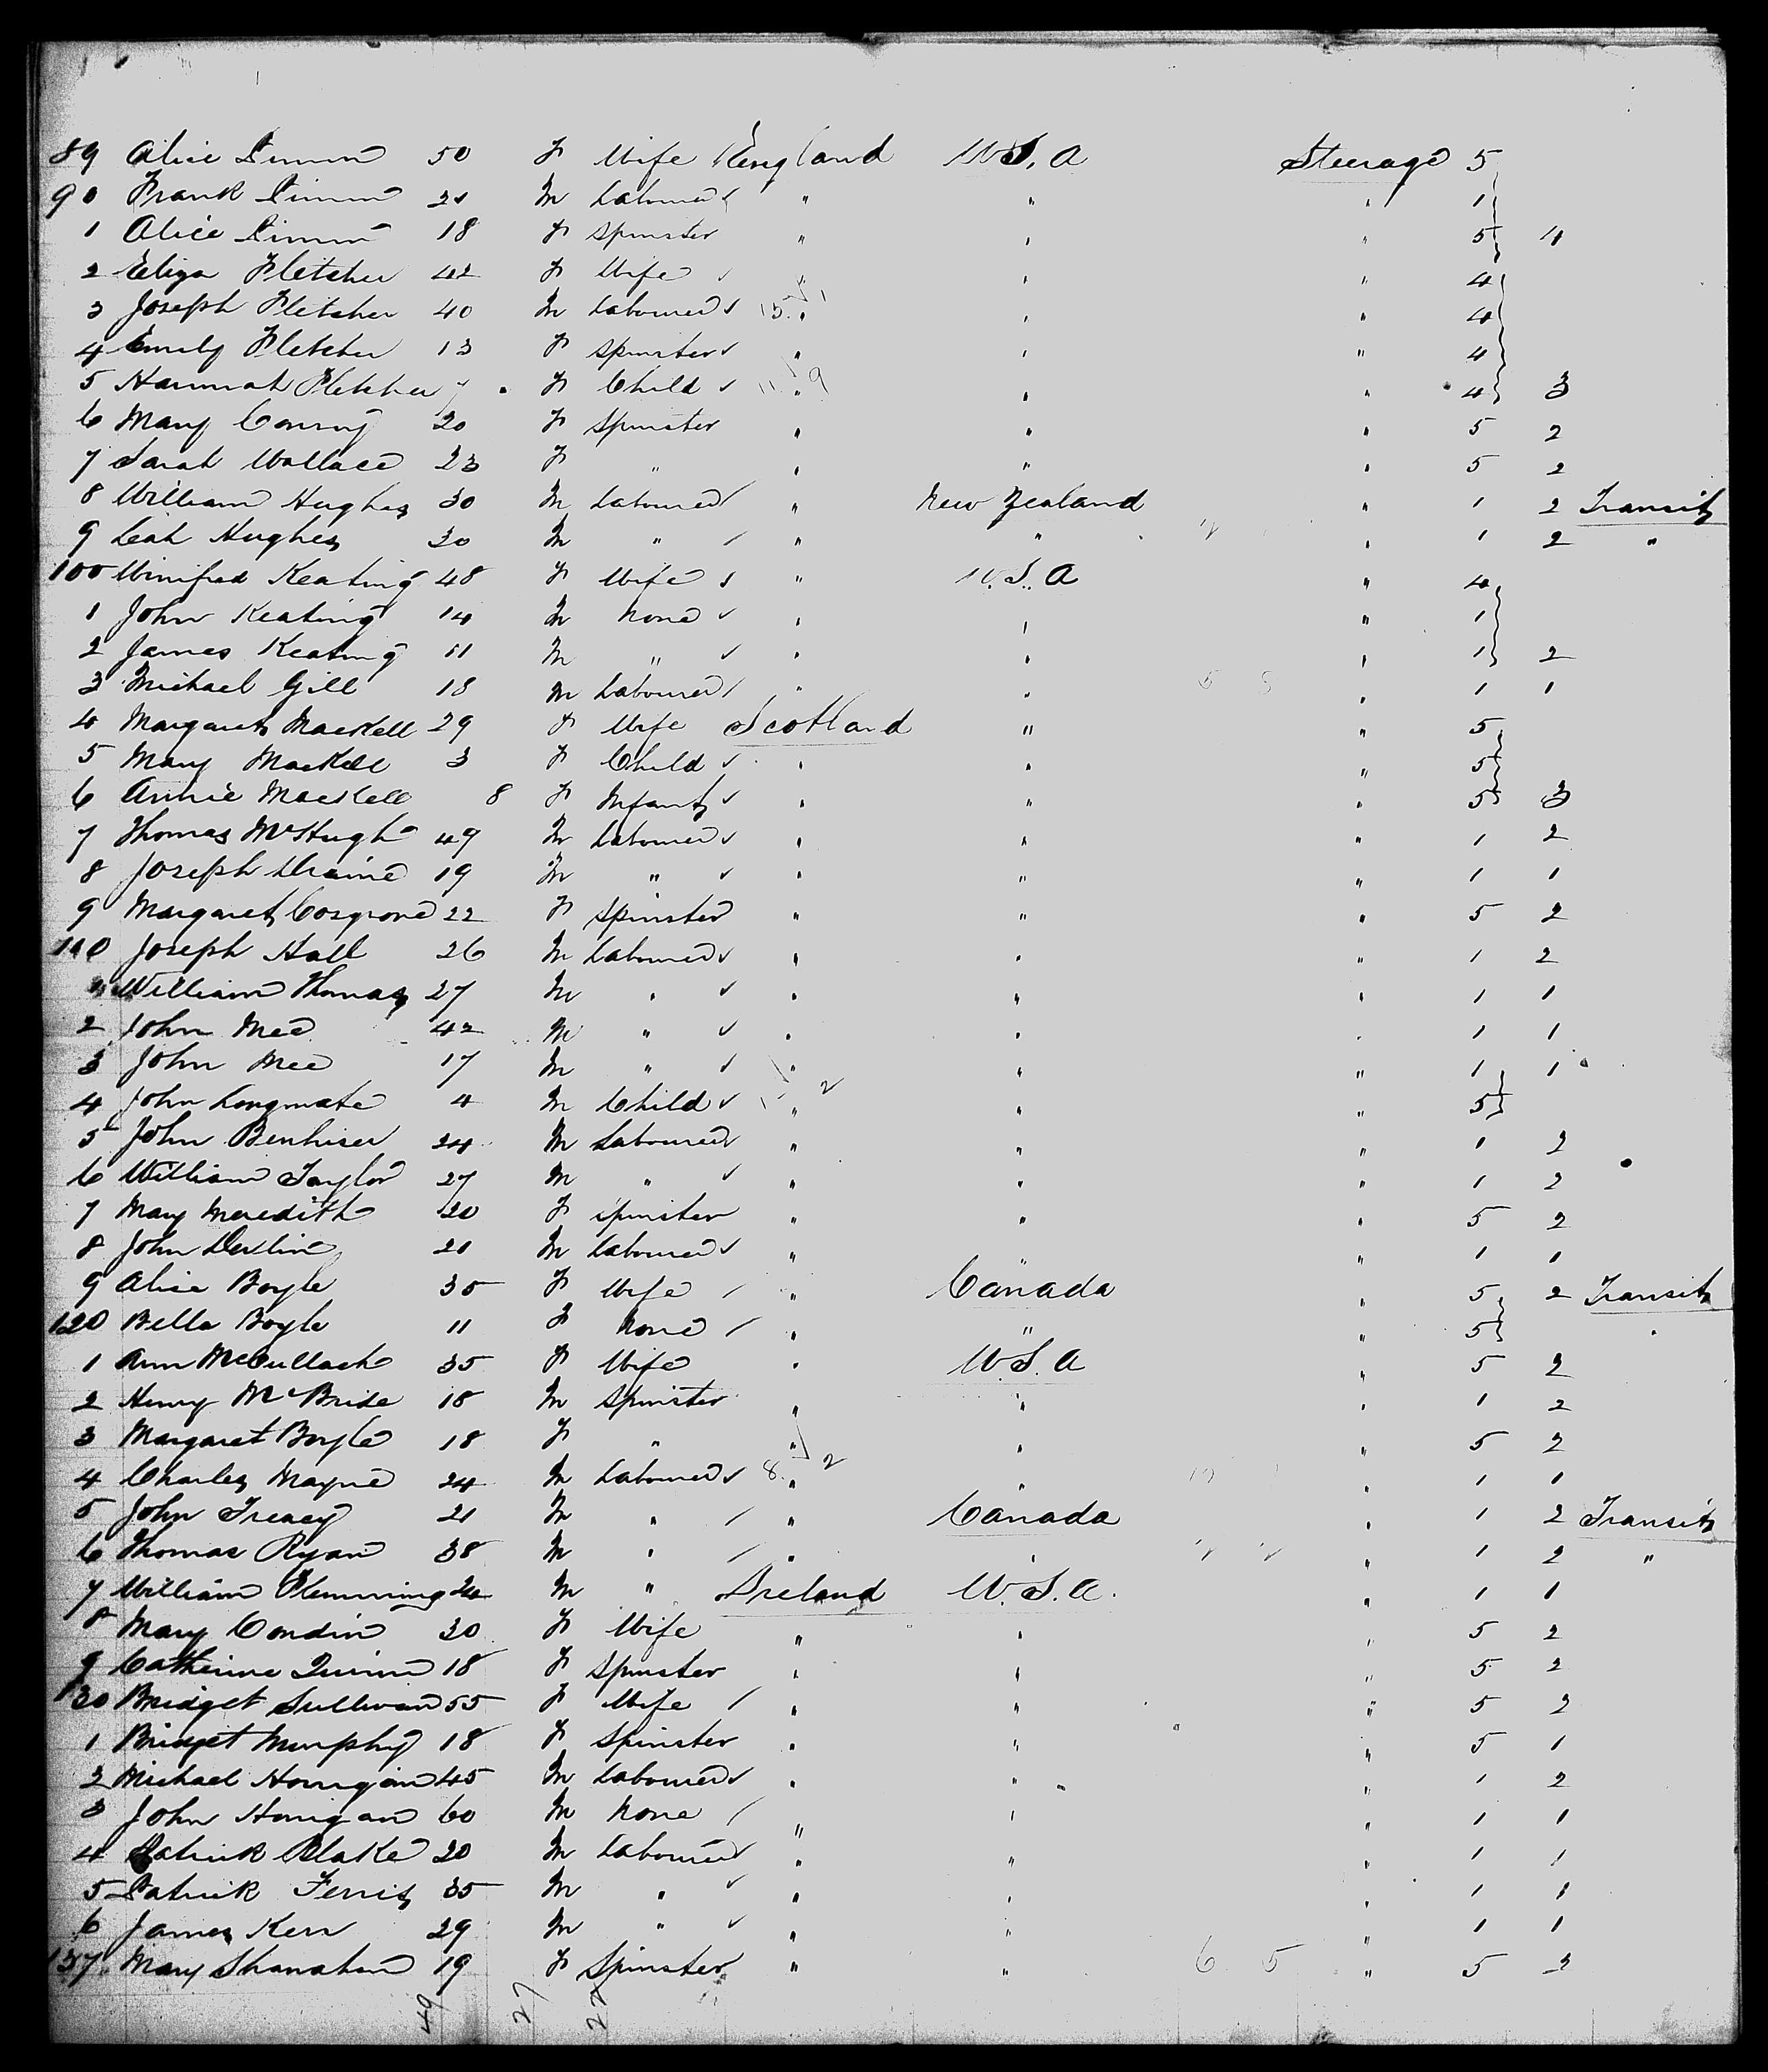 89 Alice 50 F Wife England U.S.A Steerage 5
90 Frank 21 M Labourer " " " 1
1 Alice 18 F Spinster " " " 5 4
2 Eliza Fletcher 42 F Wife " " " 4
3 Joseph Fletcher 40 M Labourer " " " 4
4 Emily Fletcher 13 F Spinster " " " 4
5 Hannah Fletcher 7 F Child " " " 4 3
6 Mary 20 F Spinster " " " 5 2
7 Sarah Wallace 23 F " " " " 5 2
8 William Hughes 30 M Labourer " New Zealand " 1 2 Transit
9 Leah Hughes 30 M " " " " 1 2 "
100 Winifred Keating 48 F Wife " U.S.A " 4
1 John Keating 14 M None " " " 1
2 James Keating 11 M " " " " 1 2
3 Michael Gill 18 M Labourer " " " 1 1
4 Margaret Mackell 29 F Wife Scotland " " 5
5 Mary Mackell 3 F Child " " " 5
6 Annie Mackell 8 F Infant " " " 5 3
7 Thomas McHugh 49 M Labourer " " " 1 2
8 Joseph 19 M " " " " 1 1
9 Margaret Cosgrove 22 F Spinster " " " 5 2
110 Joseph Hall 26 M Labourer " " " 1 2
1 William Thomas 27 M " " " " 1 1
2 John Mee 42 M " " " " 1 1
3 John Mee 17 M " " " " 1 1
4 John Longmate 4 M Child " " " 5
5 John 24 M Labourer " " " 1 2
6 William Taylor 27 M " " " " 1 2
7 Mary Meredith 20 F Spinster " " " 5 2
8 John Devlin 21 M Labourer " " " 1 1
9 Alice Boyle 35 F Wife " Canada " 5 2 Transit
120 Bella Boyle 11 F None " " " 5 "
1 Ann McCullach 35 F Wife " U.S.A " 5 2
2 Henry McBride 18 M Spinster " " " 1 2
3 Margaret Boyle 18 F " " " " 5 2
4 Charles Mayne 24 M Labourer " " " 1 1
5 John Treacy 21 M " " Canada " 1 2 Transit
6 Thomas Ryan 38 M " " " " 1 2 "
7 William Flemming 24 M " Ireland U.S.A. " 1 1
8 Mary Condin 30 F Wife " " " 5 2
9 Catherine Quinn 18 F Spinster " " " 5 2
130 Bridget Sullivan 55 F Wife " " " 5 2
1 Bridget Murphy 18 F Spinster " " " 5 1
2 Michael Horrigan 45 M Labourer " " " 1 2
3 John Horrigan 60 M None " " " 1 1
4 Patrick Blake 20 M Labourer " " " 1 1
5 Patrick Ferris 35 M " " " " 1 1
6 James Kerr 29 M " " " " 1 1
137 Mary Shanahan 19 F Spinster " " 6 5 " 5 2
49 27 22